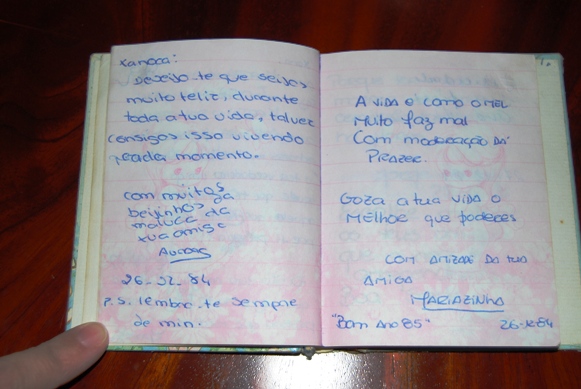 Xanoca:
Desejo-te que sejas
muito feliz, durante
toda a tua vida, talvez
consigas isso vivendo
cada momento.
com muitos
beijinhos da
maluca da
tua amiga
26-12-84
P.S. lembra-te sempre
de mim.
A vida é como o mel
muito faz mal
com moderação dá
prazer.
Goza a tua vida o
melhor que poderes
com amizade da tua
amiga
Mariazinha
"Bom Ano 85"
26-12-84